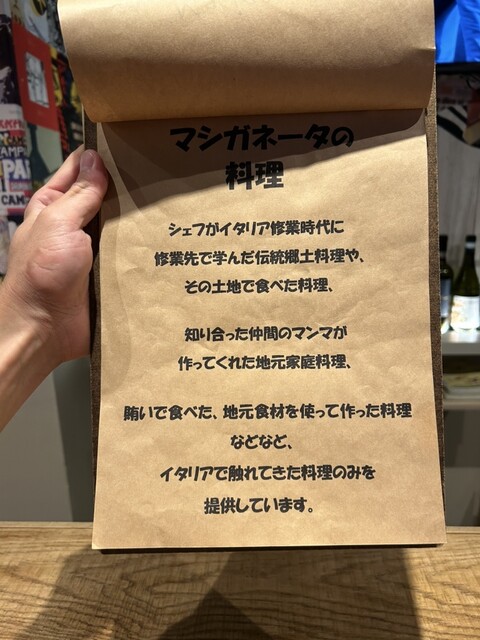 マシガネータの
料理
シェフがイタリア修業時代に
修業先で学んだ伝統郷土料理や、
その土地で食べた料理、
知り合った仲間のマンマが
作ってくれた地元家庭料理、
賄いで食べた、地元食材を使って作った料理
などなど、
イタリアで触れてきた料理のみを
提供しています。